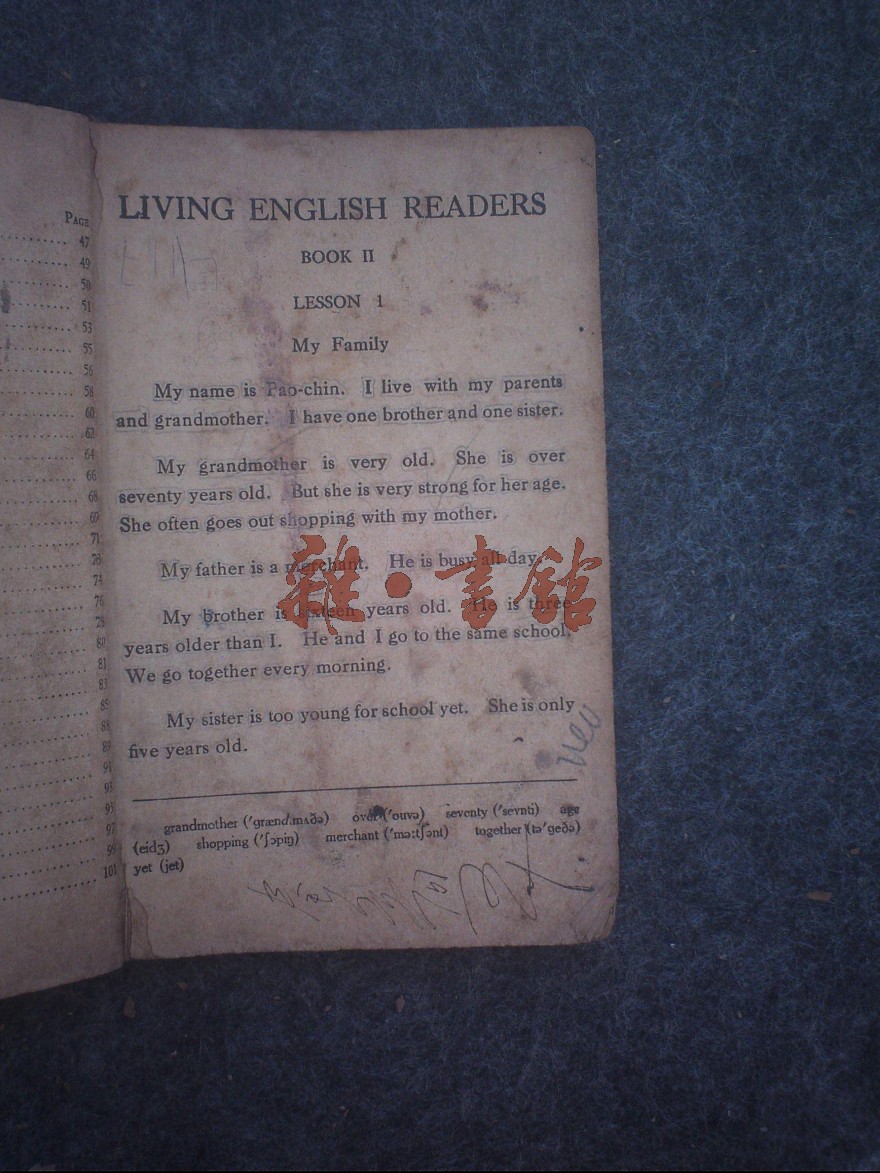 PAGE
47
49
50
51
53
55
56
58
60
62
64
66
68
69
71
73
74
76
78
80
81
83
85
88
89
91
93
95
97
99
101
LIVING ENGLISH READERS
BOOK II
LESSON 1
My Family
My name is Pao-chin. I live with my parents
and grandmother. I have one brother and one sister.
My grandmother is very old. She is over
seventy years old. But she is very strong for her age.
She often goes out shopping with my mother.
My father is a merchant. He is busy all day.
My brother is sixteen years old. He is three
years older than I. He and I go to the same school.
We go together every morning.
My sister is too young for school yet. She is only
five years old.
grandmother ('grænd.mʌðə) over ('ouvə) seventy ('sevnti) age
(eidʒ) shopping ('ʃɔpiŋ) merchant ('mə:tʃənt) together (tə'geðə)
yet (jet)
雜·書館